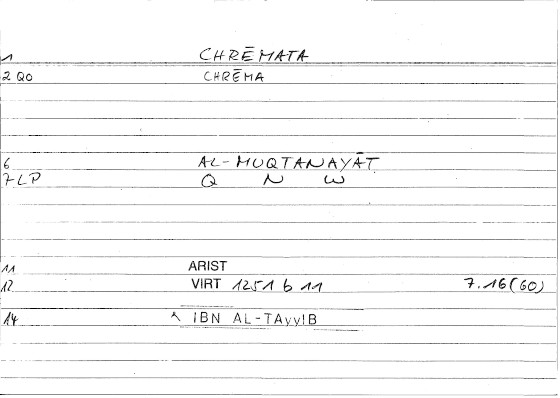 1 CHRĒMATA
2 QO CHRĒMA
6 AL-MUQTANAYĀT
7 LP Q N W
11 ARIST
12 VIRT 1251 b 11 7.16(60)
14 IBN AL-TAyyIB